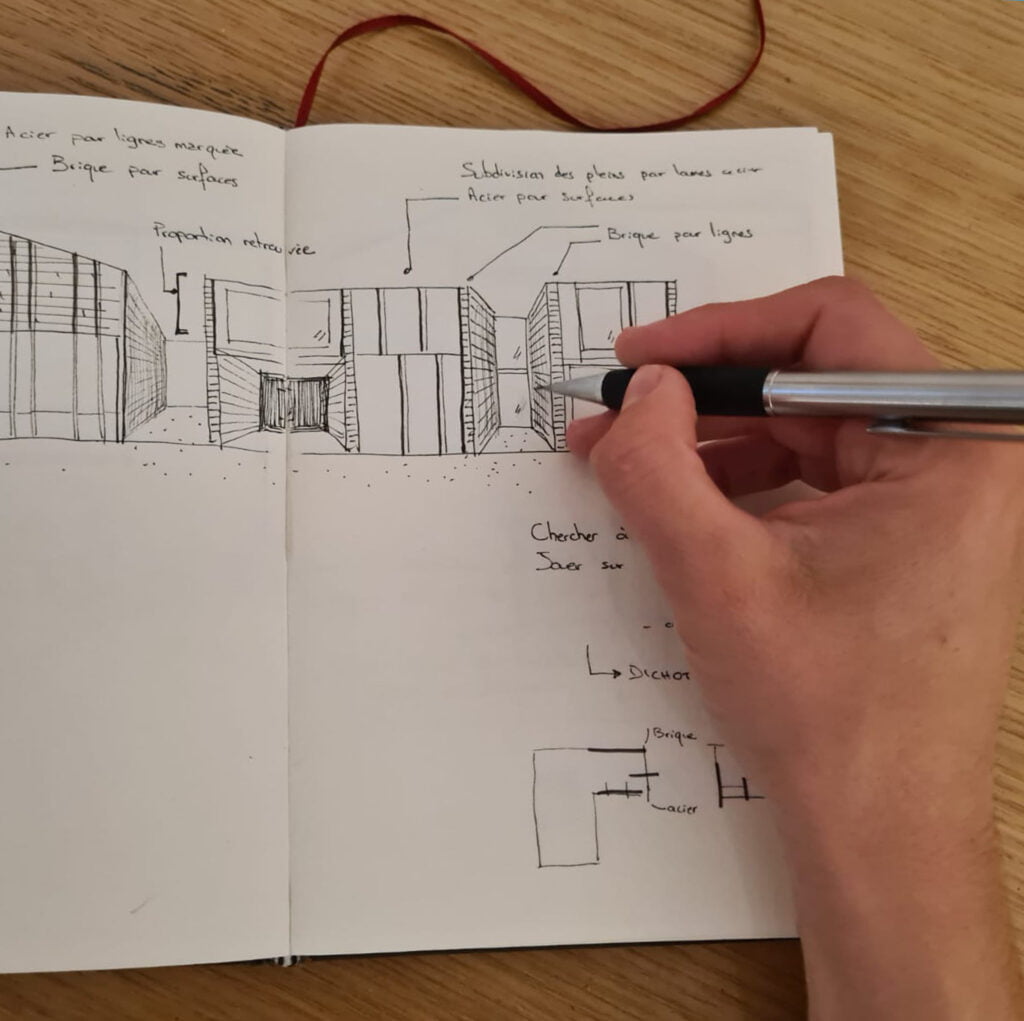 Acier par lignes marquée
Brique par surfaces
Proportion retrouvée
Subdivision des pleins par lames acier
Acier par surfaces
Brique par lignes
Chercher à
Jouer sur
DICHOT
Brique
acier